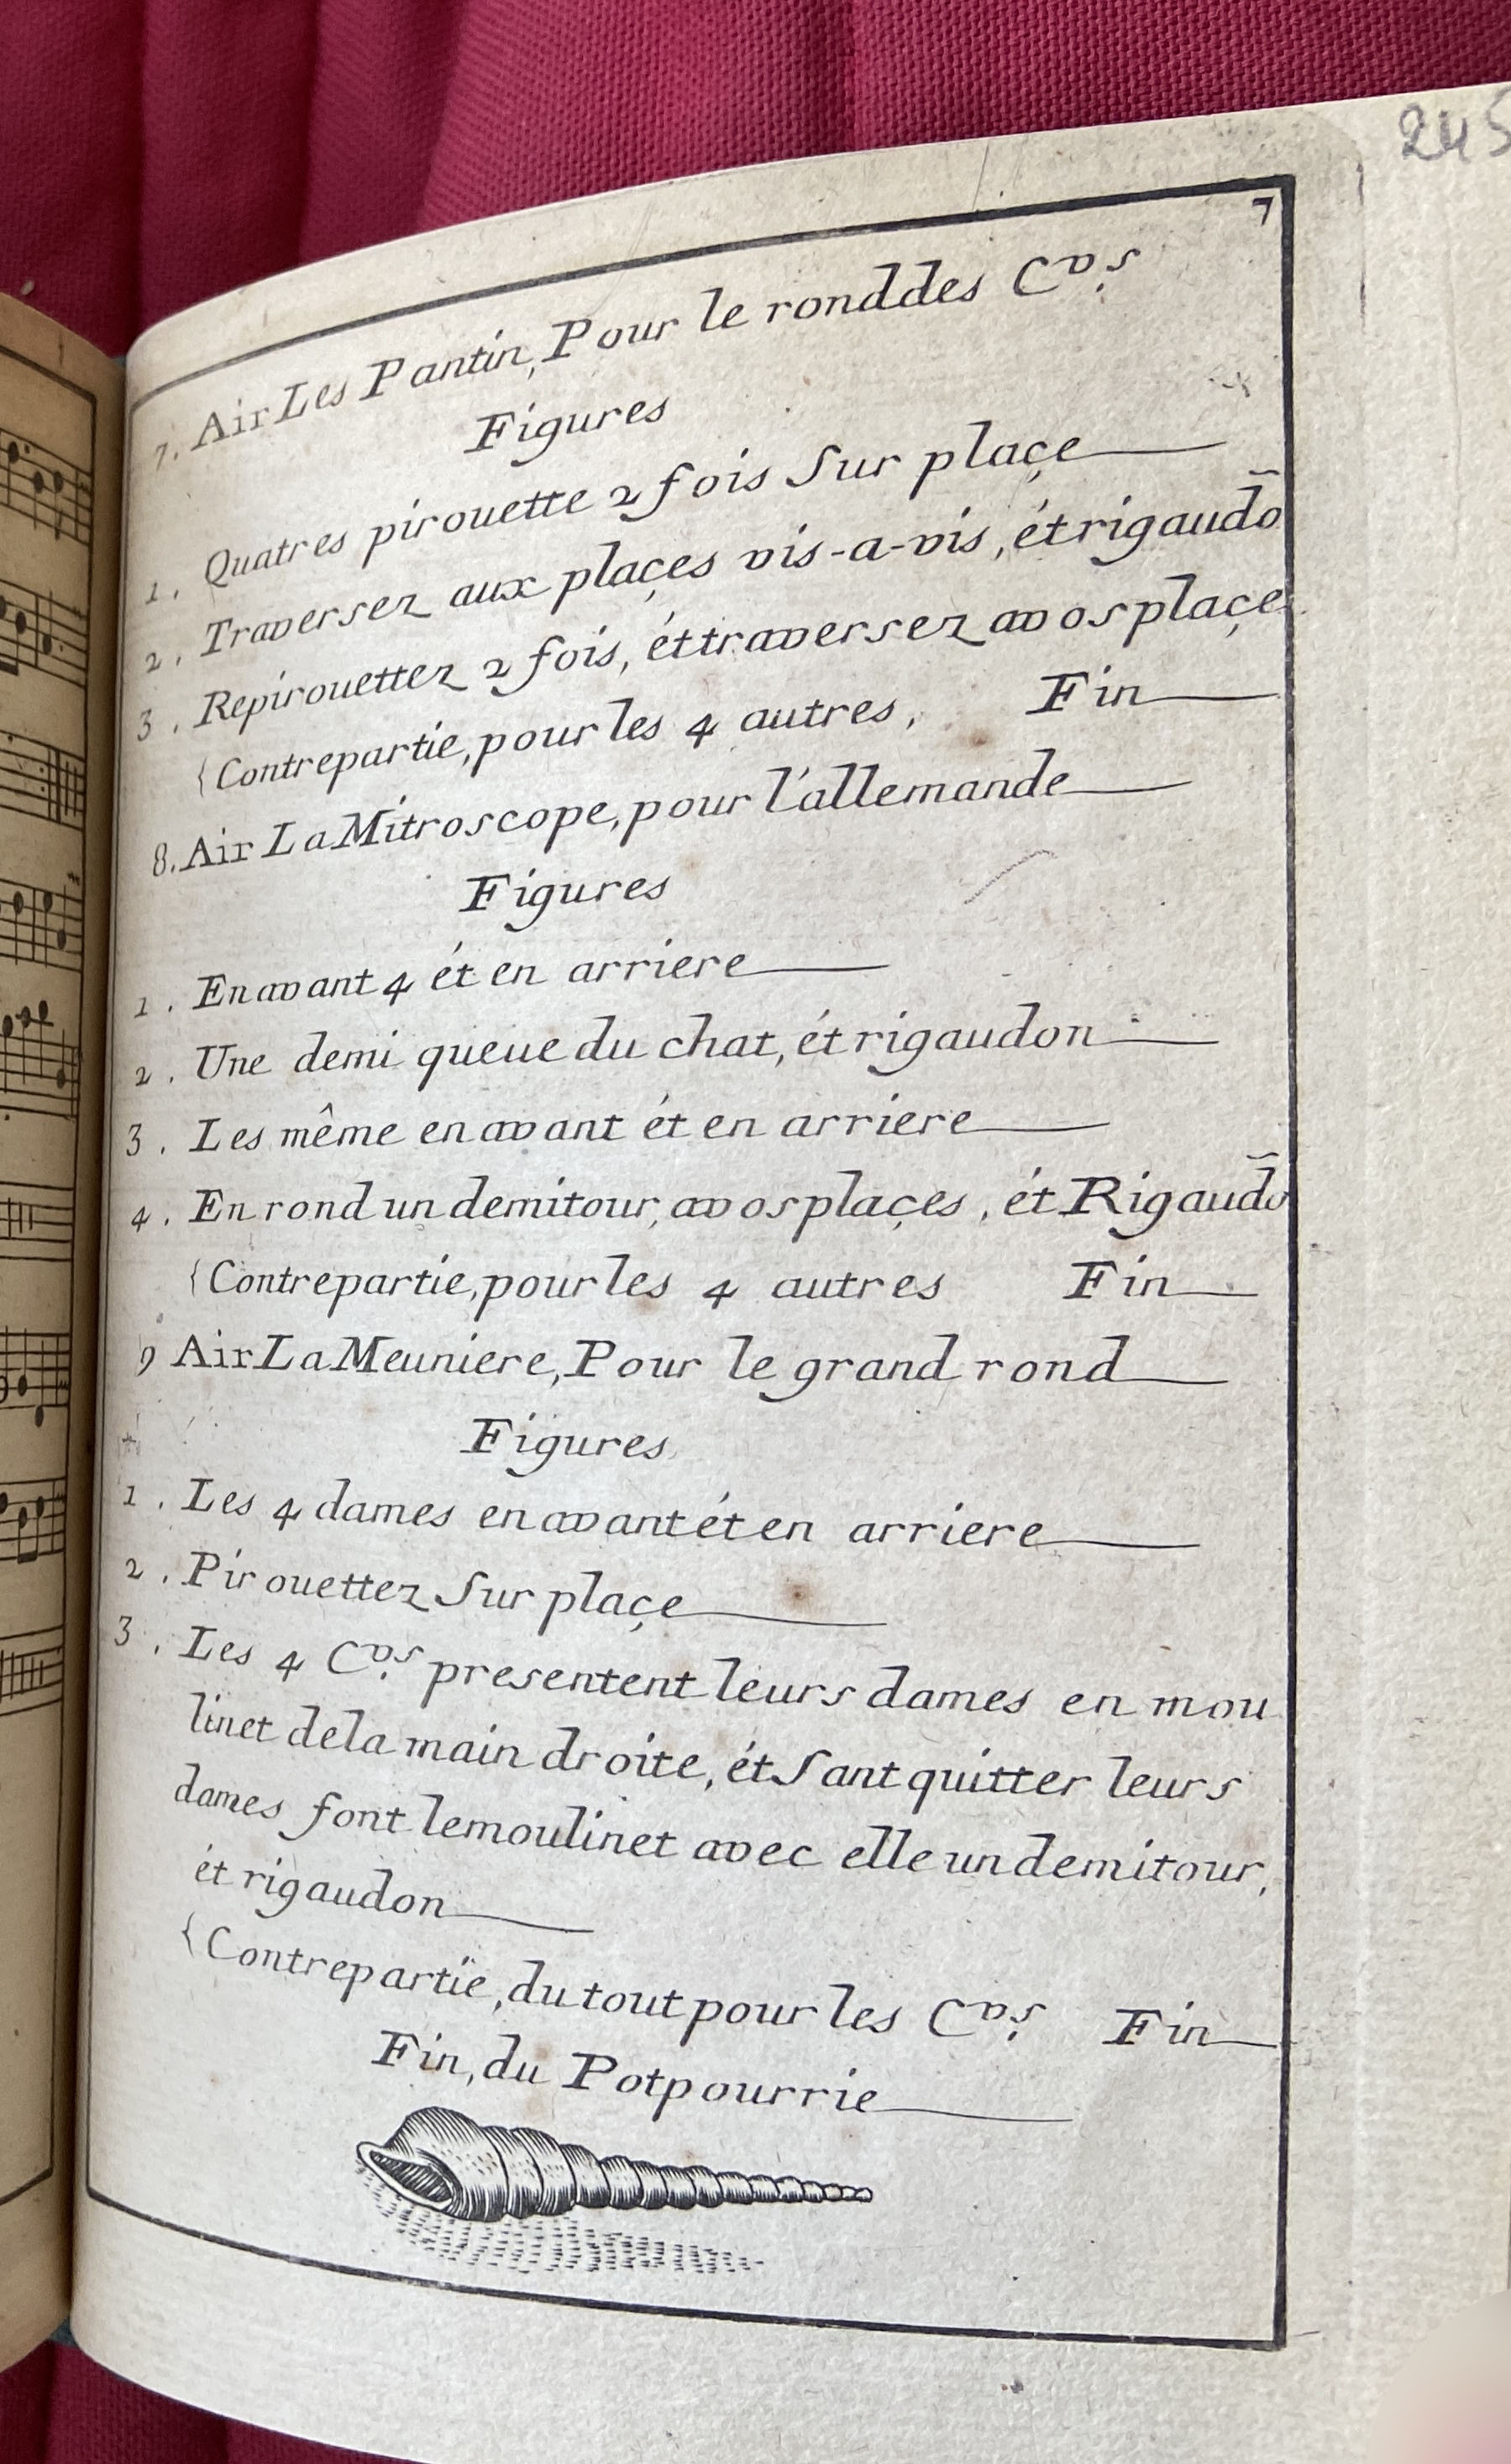 245
7
7. Air Les Pantin, Pour le rond des Cvs.
Figures
1. Quatres pirouette 2 fois Sur plaçe
2. Traversez aux plaçes vis-a-vis, ét rigaudo̅
3. Repirouettez 2 fois, ét traversez a vos plaçe
{Contrepartie, pour les 4 autres, Fin
8. Air La Mitroscope, pour l'allemande
Figures
1. En avant 4 ét en arriere
2. Une demi queue du chat, ét rigaudon
3. Les même en avant ét en arriere
4. En rond un demi tour, a vos plaçes, ét Rigaudo̅
{Contrepartie, pour les 4 autres Fin
9 Air La Meuniere, Pour le grand rond
Figures
1. Les 4 dames en avant ét en arriere
2. Pirouettez Sur plaçe
3. Les 4 Cvs. presentent leurs dames en mou
linet de la main droite, ét Sant quitter leurs
dames font le moulinet avec elle un demi tour,
ét rigaudon
{Contrepartie, du tout pour les Cvs. Fin
Fin, du Potpourrie